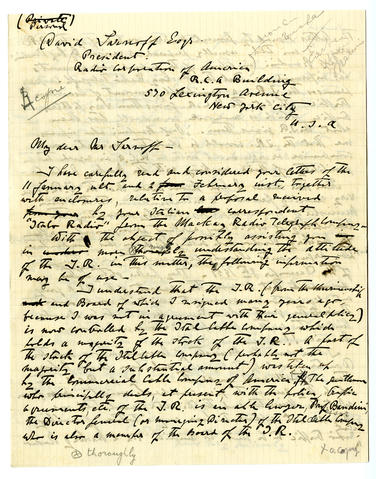 (Private
Personal
David Sarnoff Esqr
President
Radio Corporation of America
R.C.A Building
570 Lexington Avenue
New York City
U.S.A
4 copies
My dear Mr Sarnoff —
I have carefully read and considered your letters of the
11 January ult. and 2 February inst. together
with enclosures, relative to a proposal received
from you by your Italian correspondent
"Italo Radio" from the Mackay Radio Telegraph Company.
With the object of possibly assisting you
in more understanding the attitude
of the I.R. in this matter, the following information
may be of use
I understand that the I.R. (from the Chairmanship
and Board of which I resigned many years ago,
because I was not in agreement with their general policy)
is now controlled by the Italcable Company which
holds a majority of the stock of the I.R. A part of
the stock of the Italcable Company (probably not the
majority but a substantial amount) was taken up
by the Commercial Cable Company of America. The gentleman
who principally deals, at present, with the policy, traffic
agreements etc. of the I.R. is an able lawyer, Prof Bandini
the Director General (or managing Director) of the Italcable Company
who is also a member of the Board of the I.R.
thoroughly